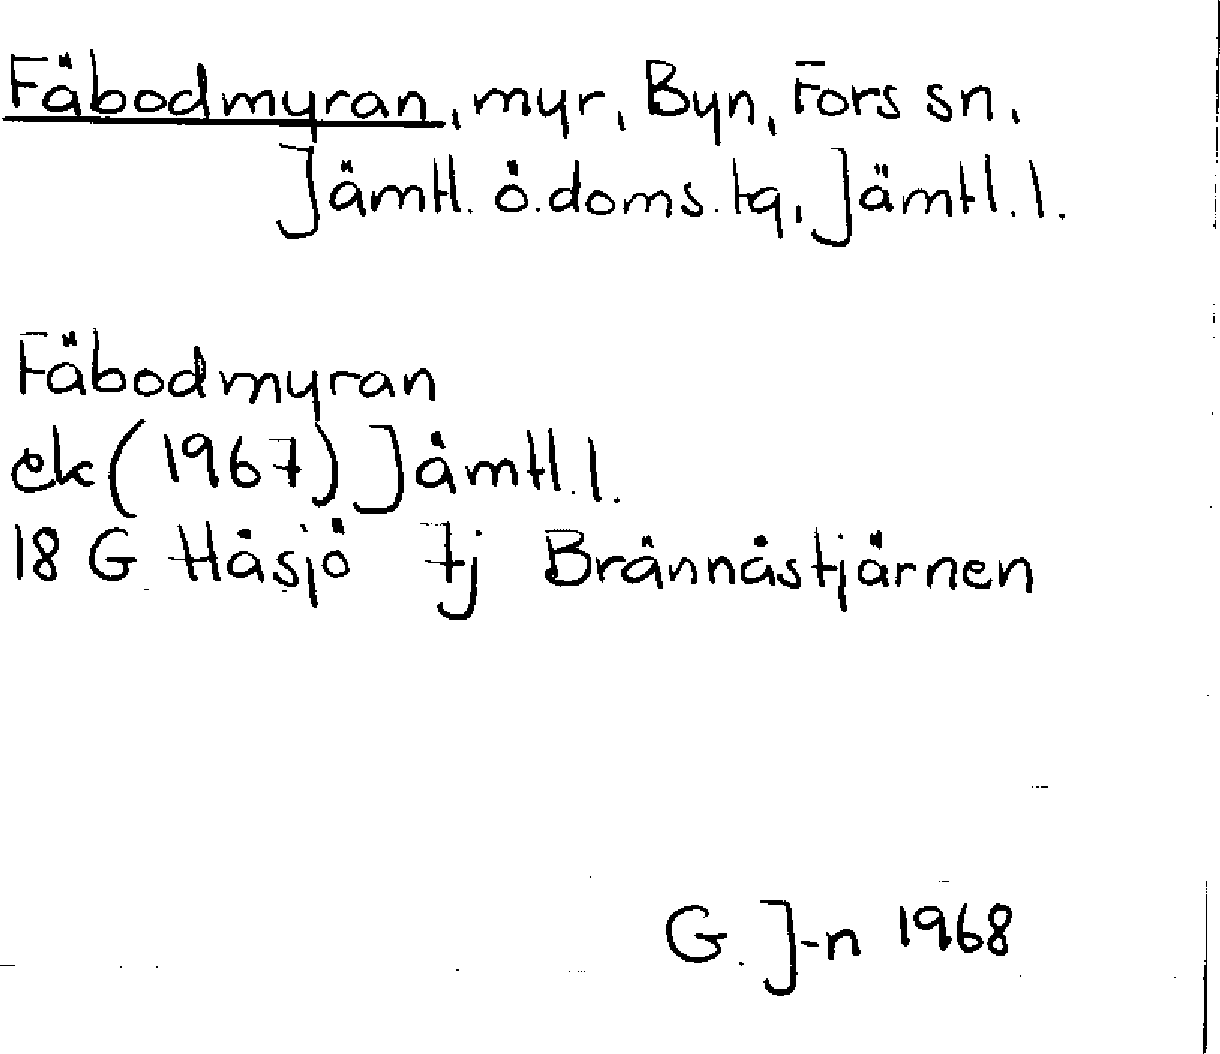 Fäbodmyran, myr, Byn, Fors sn,
Jämtl. ö. doms. tg, Jämtl. l.
Fäbodmyran
ek (1967) Jämtl. l.
18 G Håsjö 7j Brännåstjärnen
G. J-n 1968